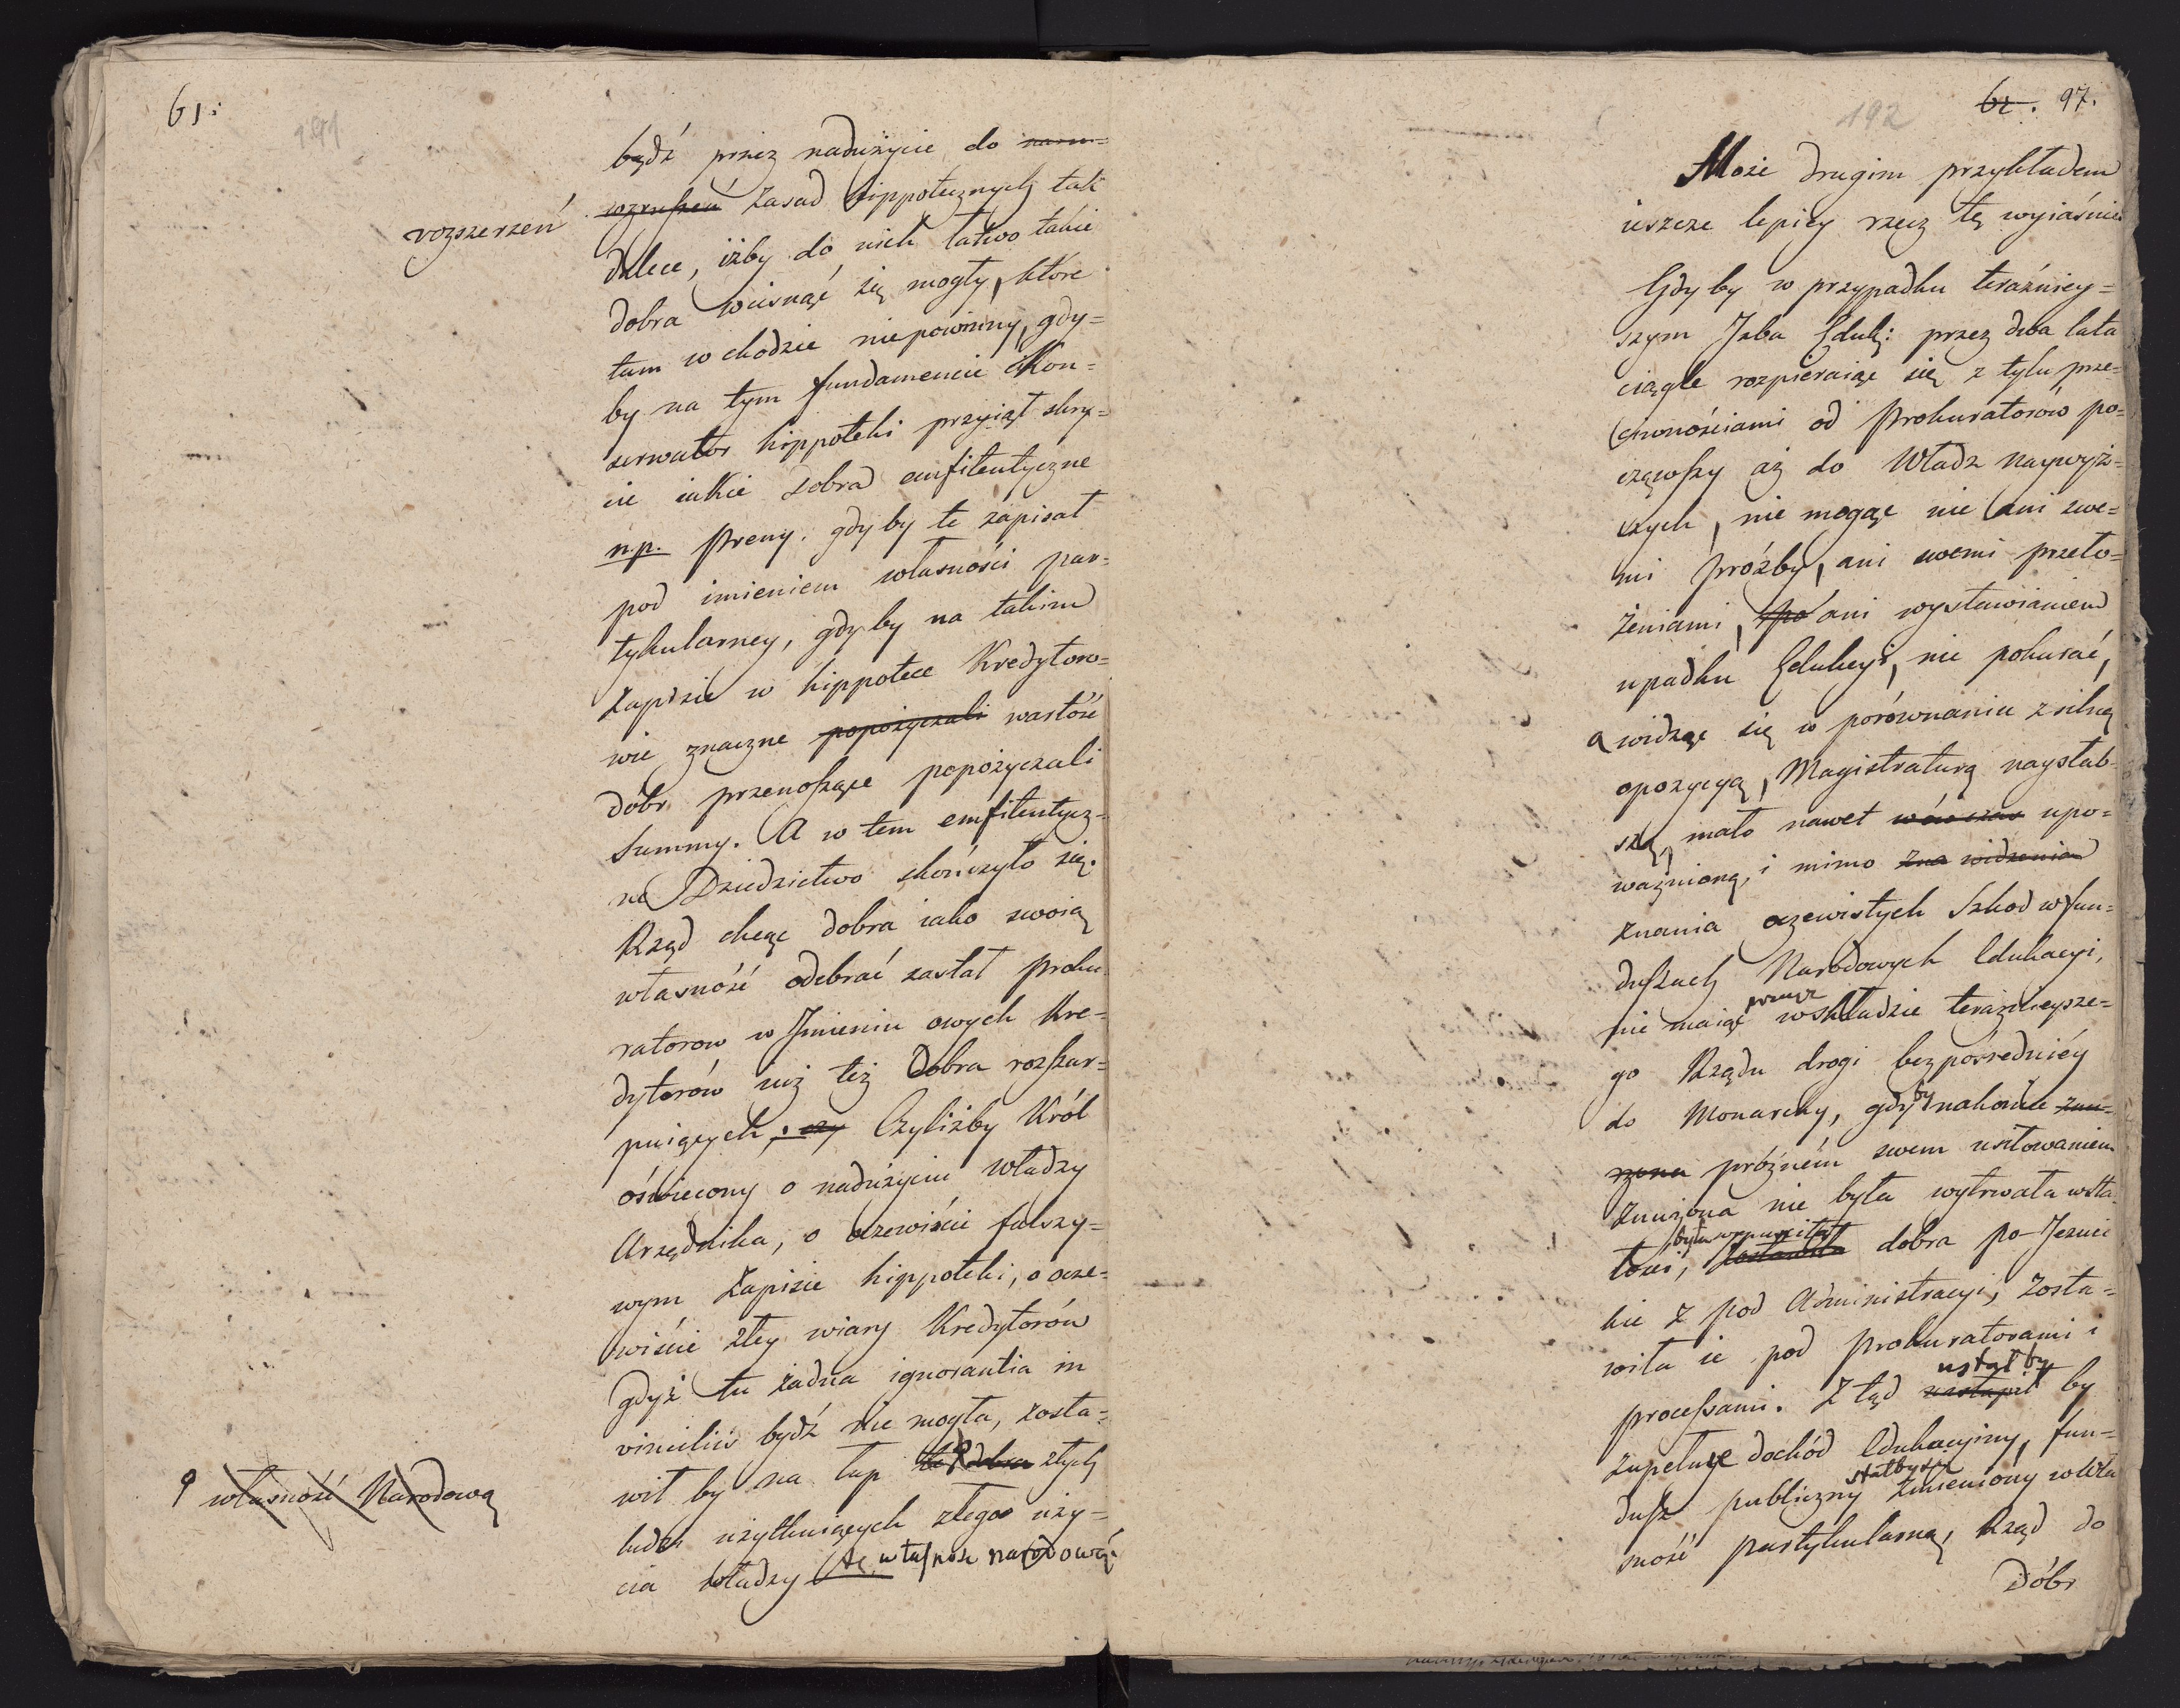 61:
191
bydź przez nadużycie do
rozszerzeń
wzruszeń zasad hippotecznych tak
dalece, iżby do nich łatwo takie
dobra wcisnąć się mogły, które
tam wchodzić niepowinny, gdy=
by na tym fundamencie Kon=
serwator hippoteki przyiął skry=
cie iakie dobra emfiteutyczne
n.p. Preny. gdyby te zapisał
pod imieniem własności par=
tykularney, gdyby na takim
zapisie w hippotece Kredytoro=
wie znaczne popożyczali wartość
dóbr przenoszące popożyczali
Summy. A w tem emfiteutycz=
ne Dziedzictwo skończyło się.
Rząd chcąc dobra iako swoią
własność odebrać zastał proku
ratorow w Jmieniu owych Kre=
dytorów iuż też Dobra rozszar=
puiących, czy Czyliżby Król
oświecony o nadużyciu władzy
Urzędnika, o oczewiście fałszy=
wym Zapisie hippoteki, o ocze=
wiście złey wiary Kredytorów
gdyż tu żadna ignorantia in
vincilis bydź nie mogła, zosta=
wił by na łup te dobra złych
ludzi użytkuiących złego uży=
cia władzy tę własność narodową.
własność Narodową
192
62. 97.
Może drugim przykładem
ieszcze lepiey rzecz tę wyiaśnie
Gdyby w przypadku teraźniey=
szym Jzba Eduk: przez dwa lata
ciągle rozpieraiąc się z tylu prze=
ciwnościami od Prokuratorów po=
cząwszy aż do Władz naywyż=
szych, nie mogąc nie ani swe=
mi prośby, ani swemi przeło=
żeniami, po ani wystawianiem
upadku Edukcyi, nie pokurać,
a widząc się w porównaniu z silną
opozycyą, Magistraturą naysłab
szą, mało nawet wówczas upo=
ważnioną, i mimo zna widzenia
znania oczewistych Szkod w fun=
duszach Narodowych Edukacyi,
nie maiąc w składzie teraźnieysze=
go Rządu drogi bezpośredniéy
do Monarchy, gdyby nakoniec
próżném swem usiłowaniem
znużona nie była wytrwała w sta
łości, była wypuściła zostawiła dobra po-Jezuic
kie z pod Administracyi, Zosta=
wiła ie pod Prokuratorami i
processami. Z tąd nastąpił ustąłby by
zupełnie dochód Edukacyiny, fun=
dusz publiczny stałby się zmieniony w Wła
sność partykularną, Rząd do
Dóbr